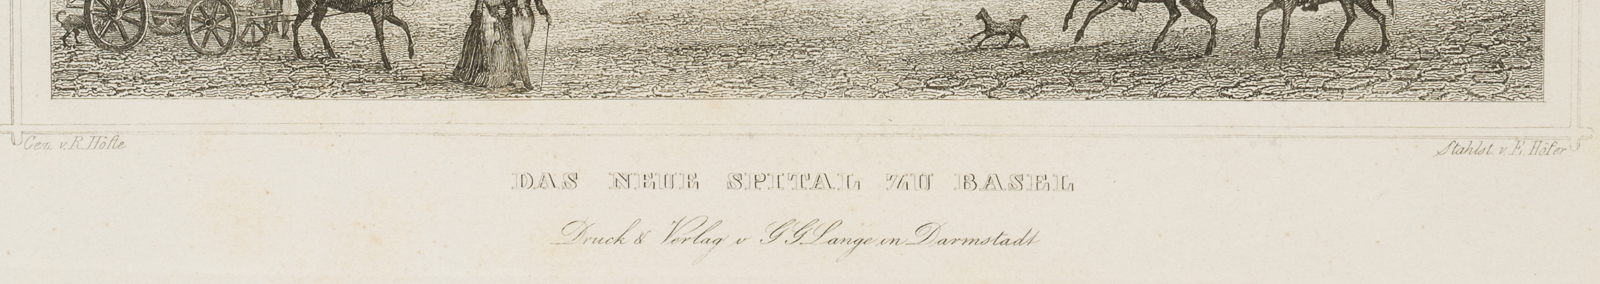 Gez. v. R. Höfle
Stahlst. v. E. Höfer
DAS NEUE SPITAL ZU BASEL
Druck & Verlag v G G Lange in Darmstadt